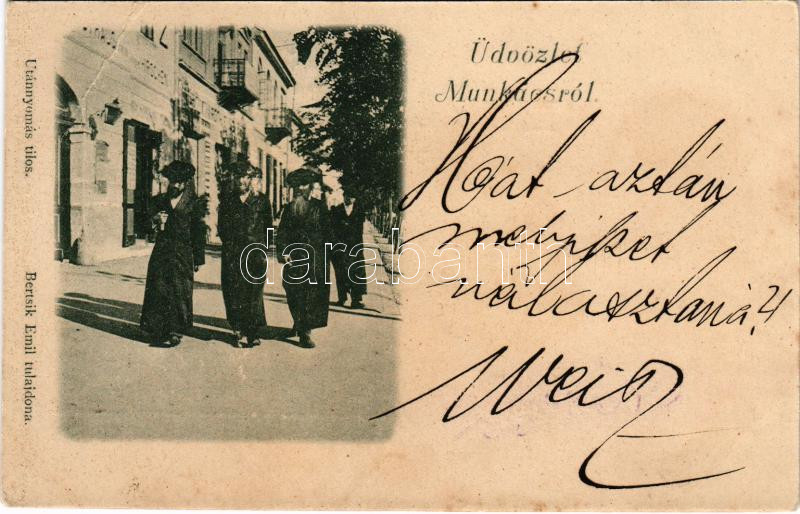 Üdvözlet
Munkácsról.
Hát aztán
melyiket
választaná?!
Weisz
Utánnyomás tilos.
Bertsik Emil tulajdona.
darabanth